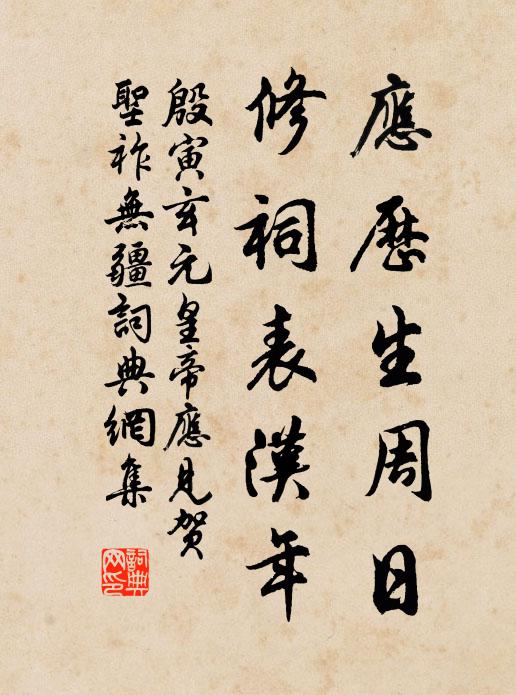 應歷生周日
修祠表漢年
殷寅玄元皇帝應見賀
聖祚無疆詞典網集
詞典網印